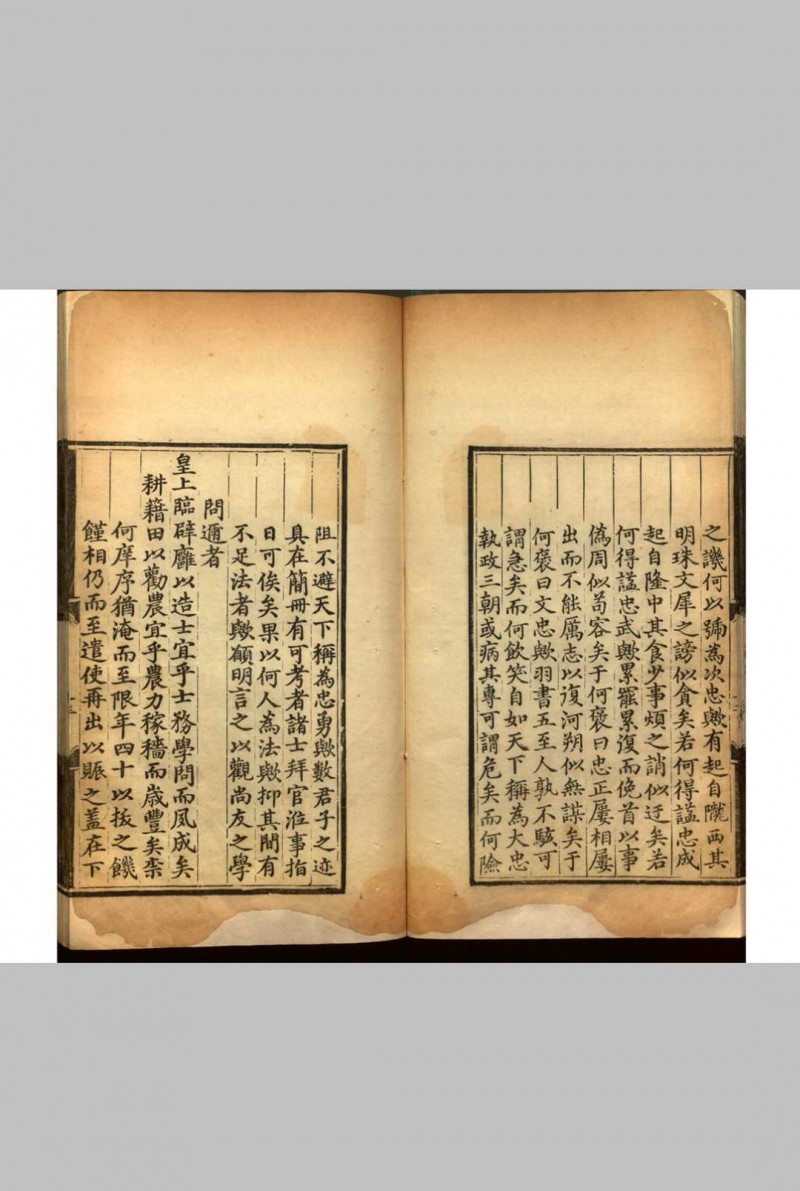 之譏何以號為次忠歟有起自隴西其
明珠文犀之謗似貪矣若何得諡忠成
起自隆中其食少事煩之誚似迂矣若
何得諡忠武歟累罷累復而俛首以事
偽周似苟容矣于何褒曰忠正屢相屢
出而不能厲志以復河朔似無謀矣于
何褒曰文忠歟羽書五至人孰不駭可
謂急矣而何飲笑自如天下稱為大忠
執政三朝或病其專可謂危矣而何險
阻不避天下稱為忠勇歟數君子之迹
具在簡冊有可考者諸士拜官涖事指
日可俟矣果以何人為法歟抑其間有
不足法者歟願明言之以觀尚友之學
問邇者
皇上臨辟廱以造士宜乎士務學問而風成矣
耕籍田以勸農宜乎農力稼穡而歲豐矣柰
何庠序猶淹而至限年四十以拔之饑
饉相仍而至遣使再出以賑之蓋在下